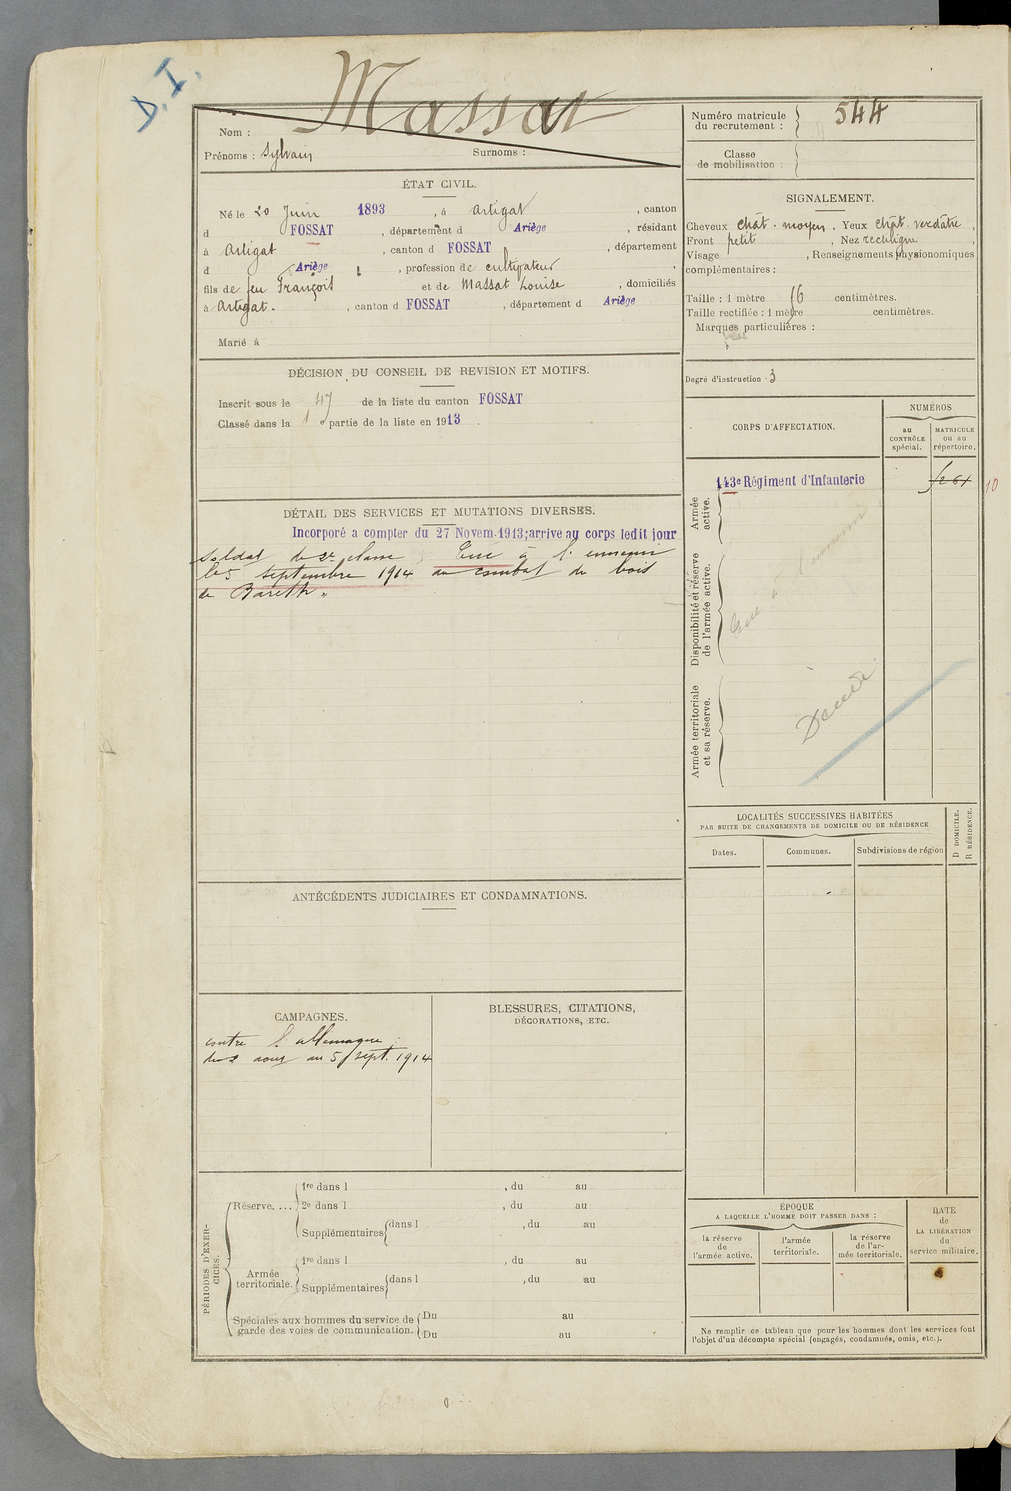 D.I.
Massat
Nom :
Prénoms : Sylvain Surnoms :
Numéro matricule
du recrutement : 544
Classe
de mobilisation :
ÉTAT CIVIL.
Né le 20 Juin 1893, à Artigat, canton
d FOSSAT, département d Ariège, résidant
à Artigat, canton d FOSSAT, département
d Ariège, profession de cultivateur,
fils de feu François et de Massat Louise, domiciliés
à Artigat., canton d FOSSAT, département d Ariège
Marié à
SIGNALEMENT.
Cheveux chât. moyen. Yeux chât. verdâtre,
Front petit, Nez rectiligne,
Visage , Renseignements physionomiques
complémentaires :
Taille : 1 mètre 56 centimètres.
Taille rectifiée : 1 mètre centimètres.
Marques particulières :
Degré d'instruction 3
DÉCISION DU CONSEIL DE REVISION ET MOTIFS.
Inscrit sous le 47 de la liste du canton FOSSAT
Classé dans la 1e partie de la liste en 1913.
CORPS D'AFFECTATION.
NUMÉROS
au
CONTRÔLE
spécial.
MATRICULE
ou au
répertoire.
Armée
active.
143e Régiment d'Infanterie
10
Disponibilité et réserve
de l'armée active.
Tué à l'ennemi
Armée territoriale
et sa réserve.
Décédé
DÉTAIL DES SERVICES ET MUTATIONS DIVERSES.
Incorporé a compter du 27 Novem. 1913; arrive au corps ledit jour
Soldat de 2e classe, Tué à l'ennemi
le 5 septembre 1914 au combat du bois
de Bareth.
LOCALITÉS SUCCESSIVES HABITÉES
PAR SUITE DE CHANGEMENTS DE DOMICILE OU DE RÉSIDENCE
Dates.
Communes.
Subdivisions de région
D DOMICILE.
R RÉSIDENCE.
ANTÉCÉDENTS JUDICIAIRES ET CONDAMNATIONS.
CAMPAGNES.
contre l'allemagne
du 2 aout au 5 sept. 1914
BLESSURES, CITATIONS,
DÉCORATIONS, ETC.
PÉRIODES D'EXER-
CICES.
Réserve. ...
1re dans l , du au
2e dans l , du au
Supplémentaires dans l , du au
Armée
territoriale.
1re dans l , du au
Supplémentaires dans l , du au
Spéciales aux hommes du service de
garde des voies de communication.
Du au
Du au
ÉPOQUE
A LAQUELLE L'HOMME DOIT PASSER DANS :
la réserve
de
l'armée active.
l'armée
territoriale.
la réserve
de l'ar-
mée territoriale.
DATE
de
LA LIBÉRATION
du
service militaire.
Ne remplir ce tableau que pour les hommes dont les services font
l'objet d'un décompte spécial (engagés, condamnés, omis, etc.).